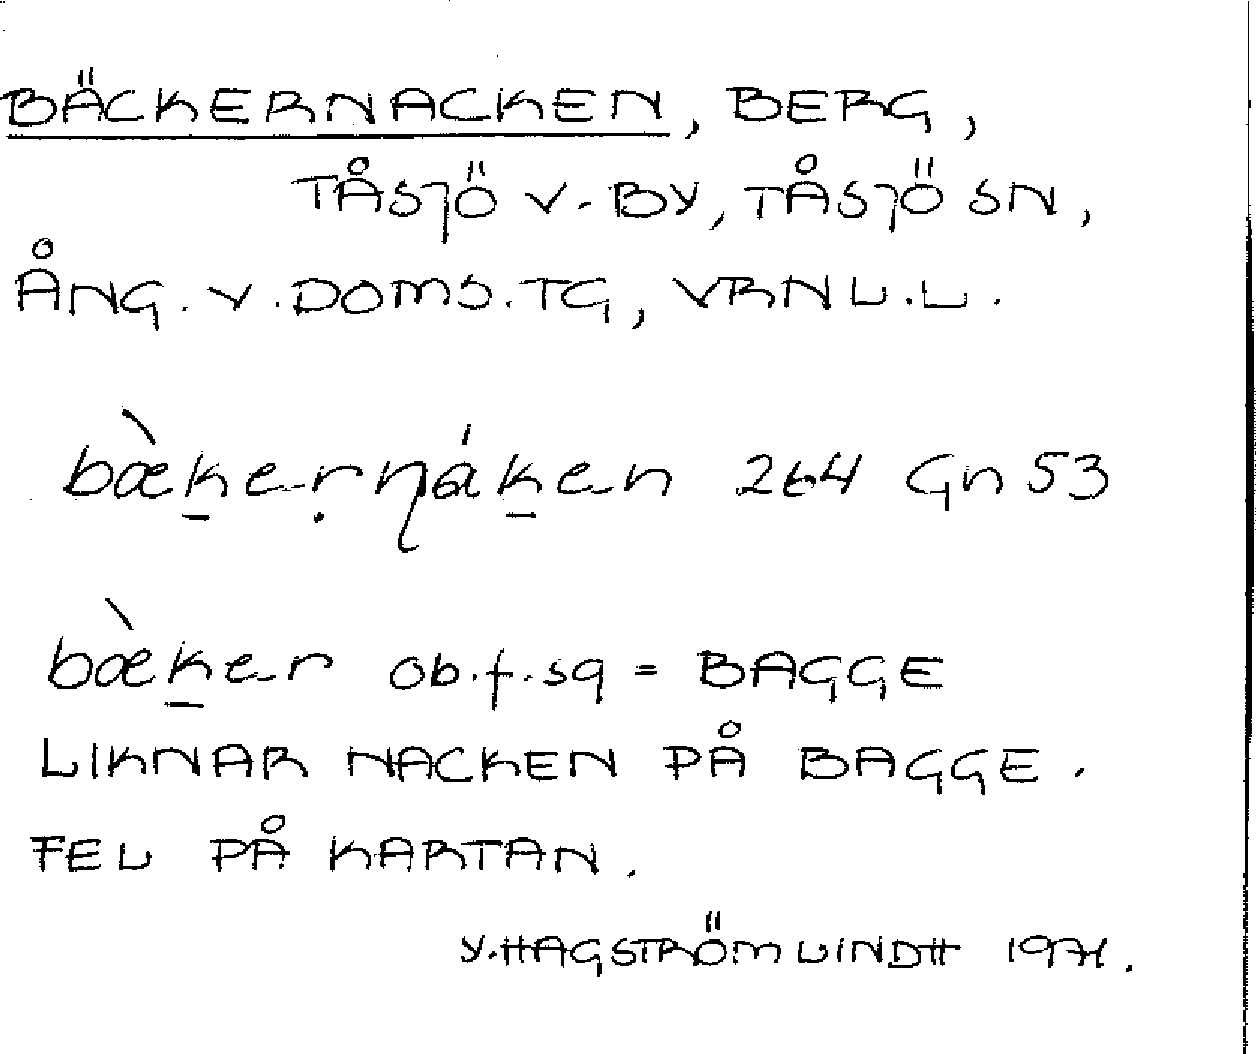 BÄCKERNACKEN, BERG,
TÅSJÖ V. BY, TÅSJÖ SN,
ÅNG. V. DOMS. TG, VRNL. L.
bæ̀ḵeṛŋáḵen 264 Gn 53
bæ̀ḵer ob.f.sg = BAGGE
LIKNAR NACKEN PÅ BAGGE.
FEL PÅ KARTAN.
Y. HAGSTRÖM LINDH 1971.